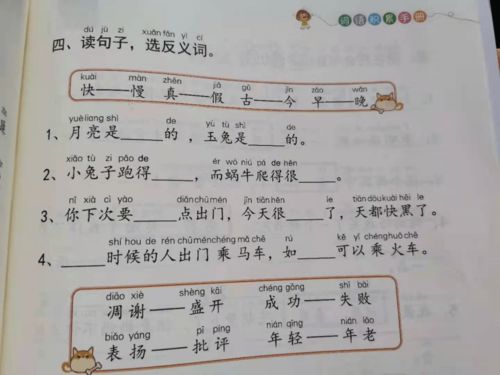 词语积累手册
dú jù zi xuǎn fǎn yì cí
四、读句子，选反义词。
kuài màn zhēn jiǎ gǔ jīn zǎo wǎn
快——慢 真——假 古——今 早——晚
yuè liang shì de yù tù shì de
1、月亮是____的，玉兔是____的。
xiǎo tù zi pǎo de ér wō niú pá de hěn
2、小兔子跑得____，而蜗牛爬得很____。
nǐ xià cì yào diǎn chū mén jīn tiān hěn le tiān dōu kuài hēi le
3、你下次要____点出门，今天很____了，天都快黑了。
shí hou de rén chū mén chéng mǎ chē rú kě yǐ chéng huǒ chē
4、____时候的人出门乘马车，如____可以乘火车。
diāo xiè shèng kāi chéng gōng shī bài
凋谢——盛开 成功——失败
biǎo yáng pī píng nián qīng nián lǎo
表扬——批评 年轻——年老